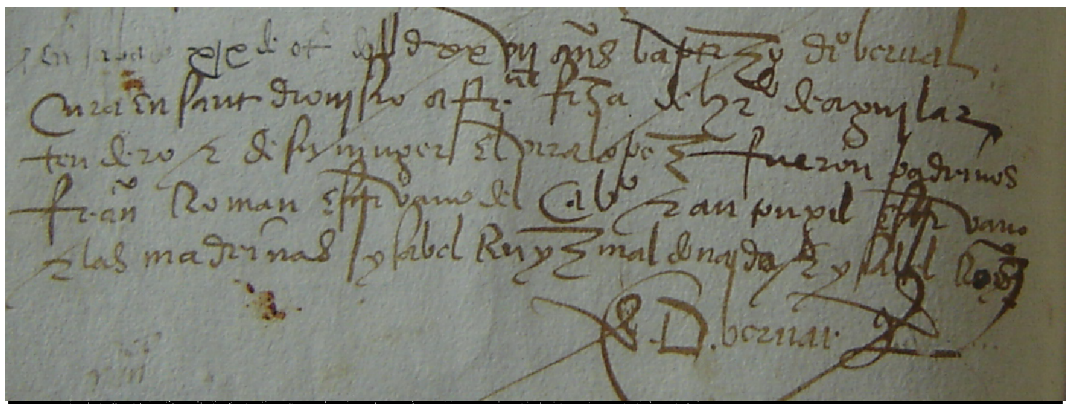 xix de ot de dxxvii años baptizo dio bernal
Cura en sant dionisio a frca fiza de hrdo de aguilar
tendero z de su muger elvira lopez fueron padrinos
fran Roman escrivano del Cabo z anton gil escrivano
z las madrinas ysabel Ruyz maldenaida z ysabel
D. bernal